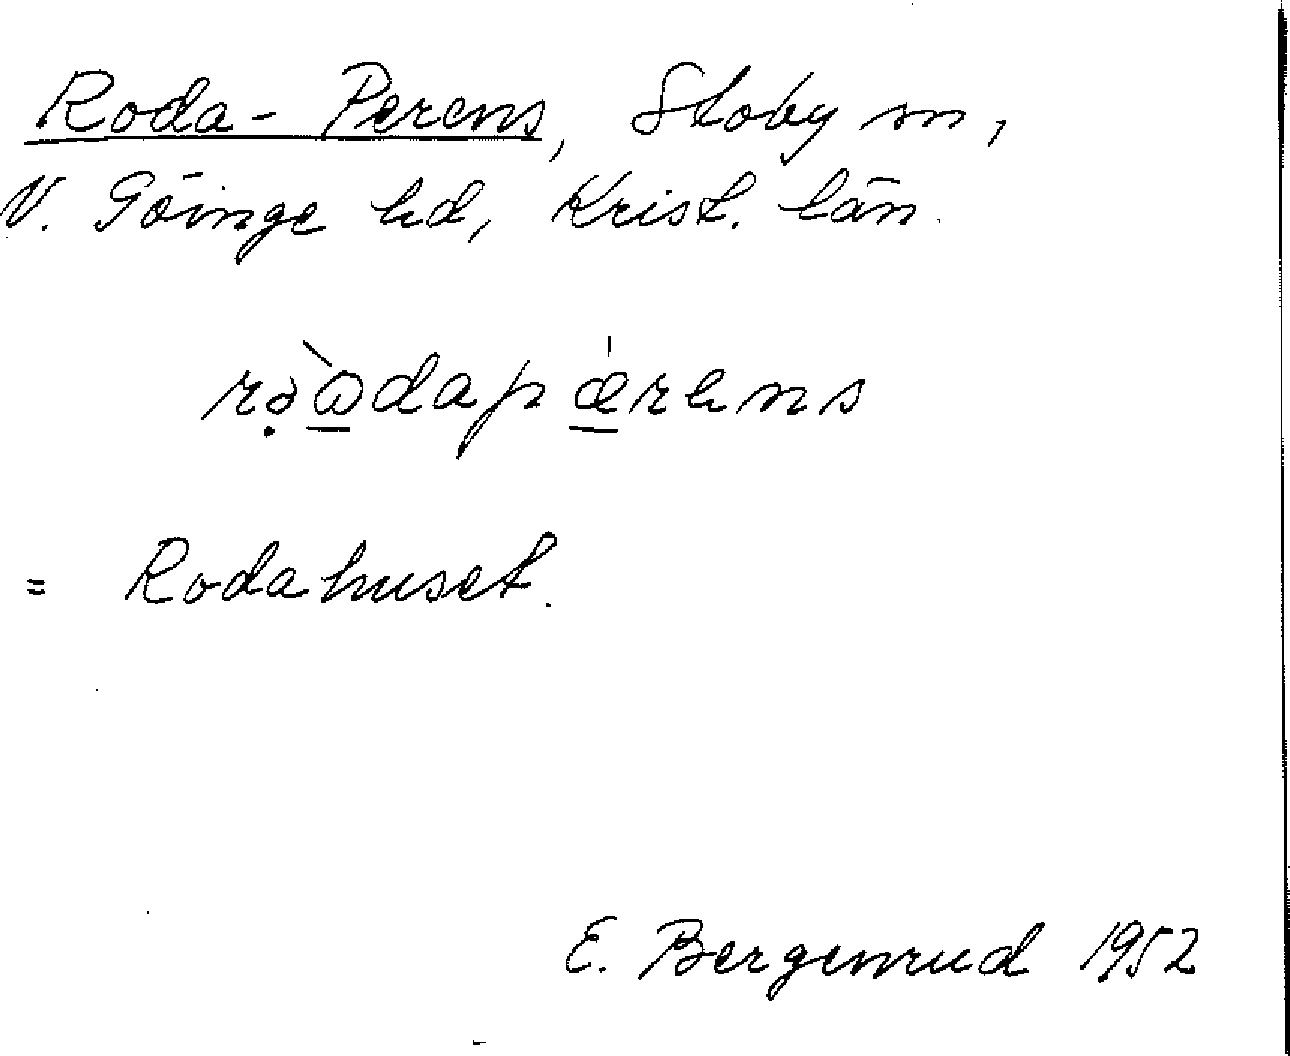 Roda-Perens, Stoby sn,
V. Göinge hd, Krist. län.
rə̣ὼdapǽrens
= Rodahuset.
E. Bergenrud 1952